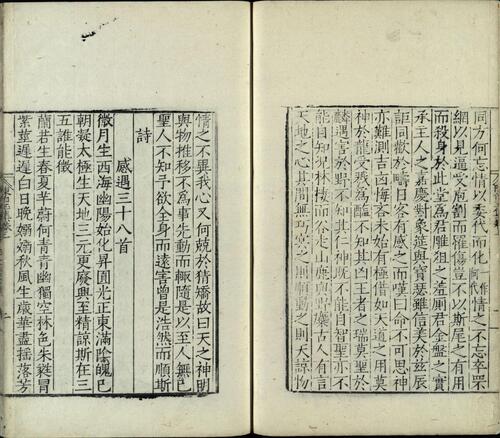 同方何忘情以委代而化一作何代不忘卒罹
網以見逼受庖割而罹傷豈不以斯尾之有用
而殺身於此堂為君雕俎之羞厠君金盤之實
承主人之嘉慶對象筵與寶瑟雖信美於茲辰
詎同歡於疇日客有感之而嘆曰命不可思神
亦難測吉凶悔吝未始有極借如天道之用莫
神於龍受戮為醢不知其凶王者之瑞莫聖於
麟遇害於野不知其仁神既不能自智聖亦不
能自知況林棲而谷走山鹿與野麋古人有言
天地之心其間無巧冥之則順動之則夭諒物
情之不異我心又何兢於猜矯故曰天之神明
與物推移不為事先動而輒隨是以至人無已
聖人不知予欲全身而遠害曾是浩然而順斯
詩
感遇三十八首
微月生西海幽陽始化昇圓光正東滿陰魄已
朝凝太極生天地三元更廢興至精諒斯在三
五誰能徵
蘭若生春夏芊蔚何青青幽獨空林色朱蕤冒
紫莖遲遲白日晚嫋嫋秋風生歲華盡搖落芳